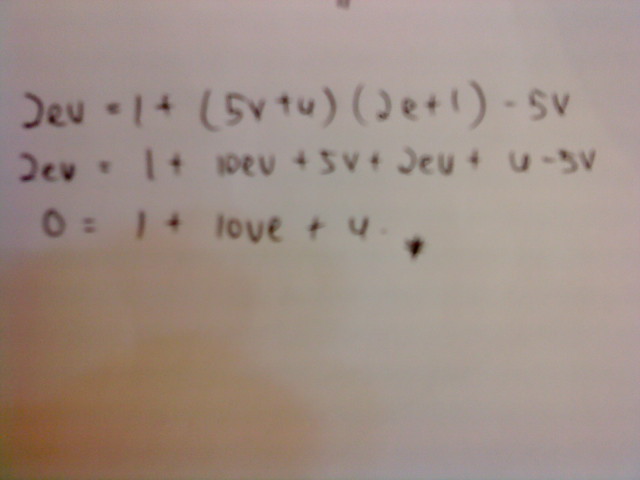 2eu = 1 + (5v+u)(2e+1) - 5v
2eu = 1 + 10ev + 5v + 2eu + u - 5v
0 = 1 + 10ve + u.